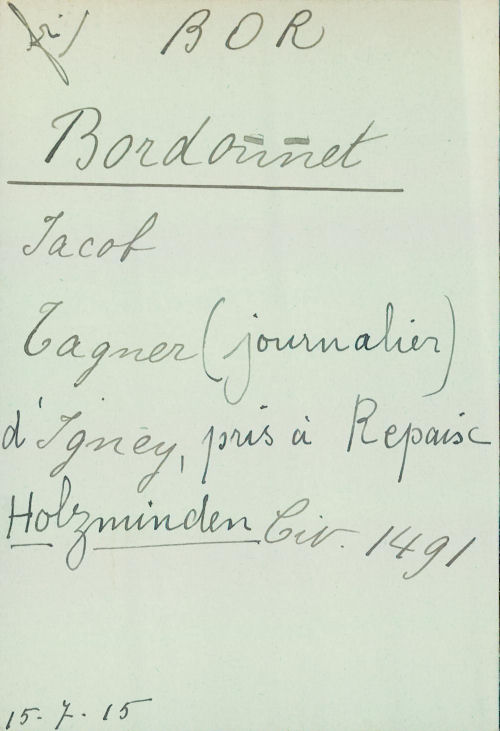 BOR
Bordonnet
Jacob
Tagner (journalier)
d'Igney, pris à Repaix
Holzminden Civ. 1491
15-7-15